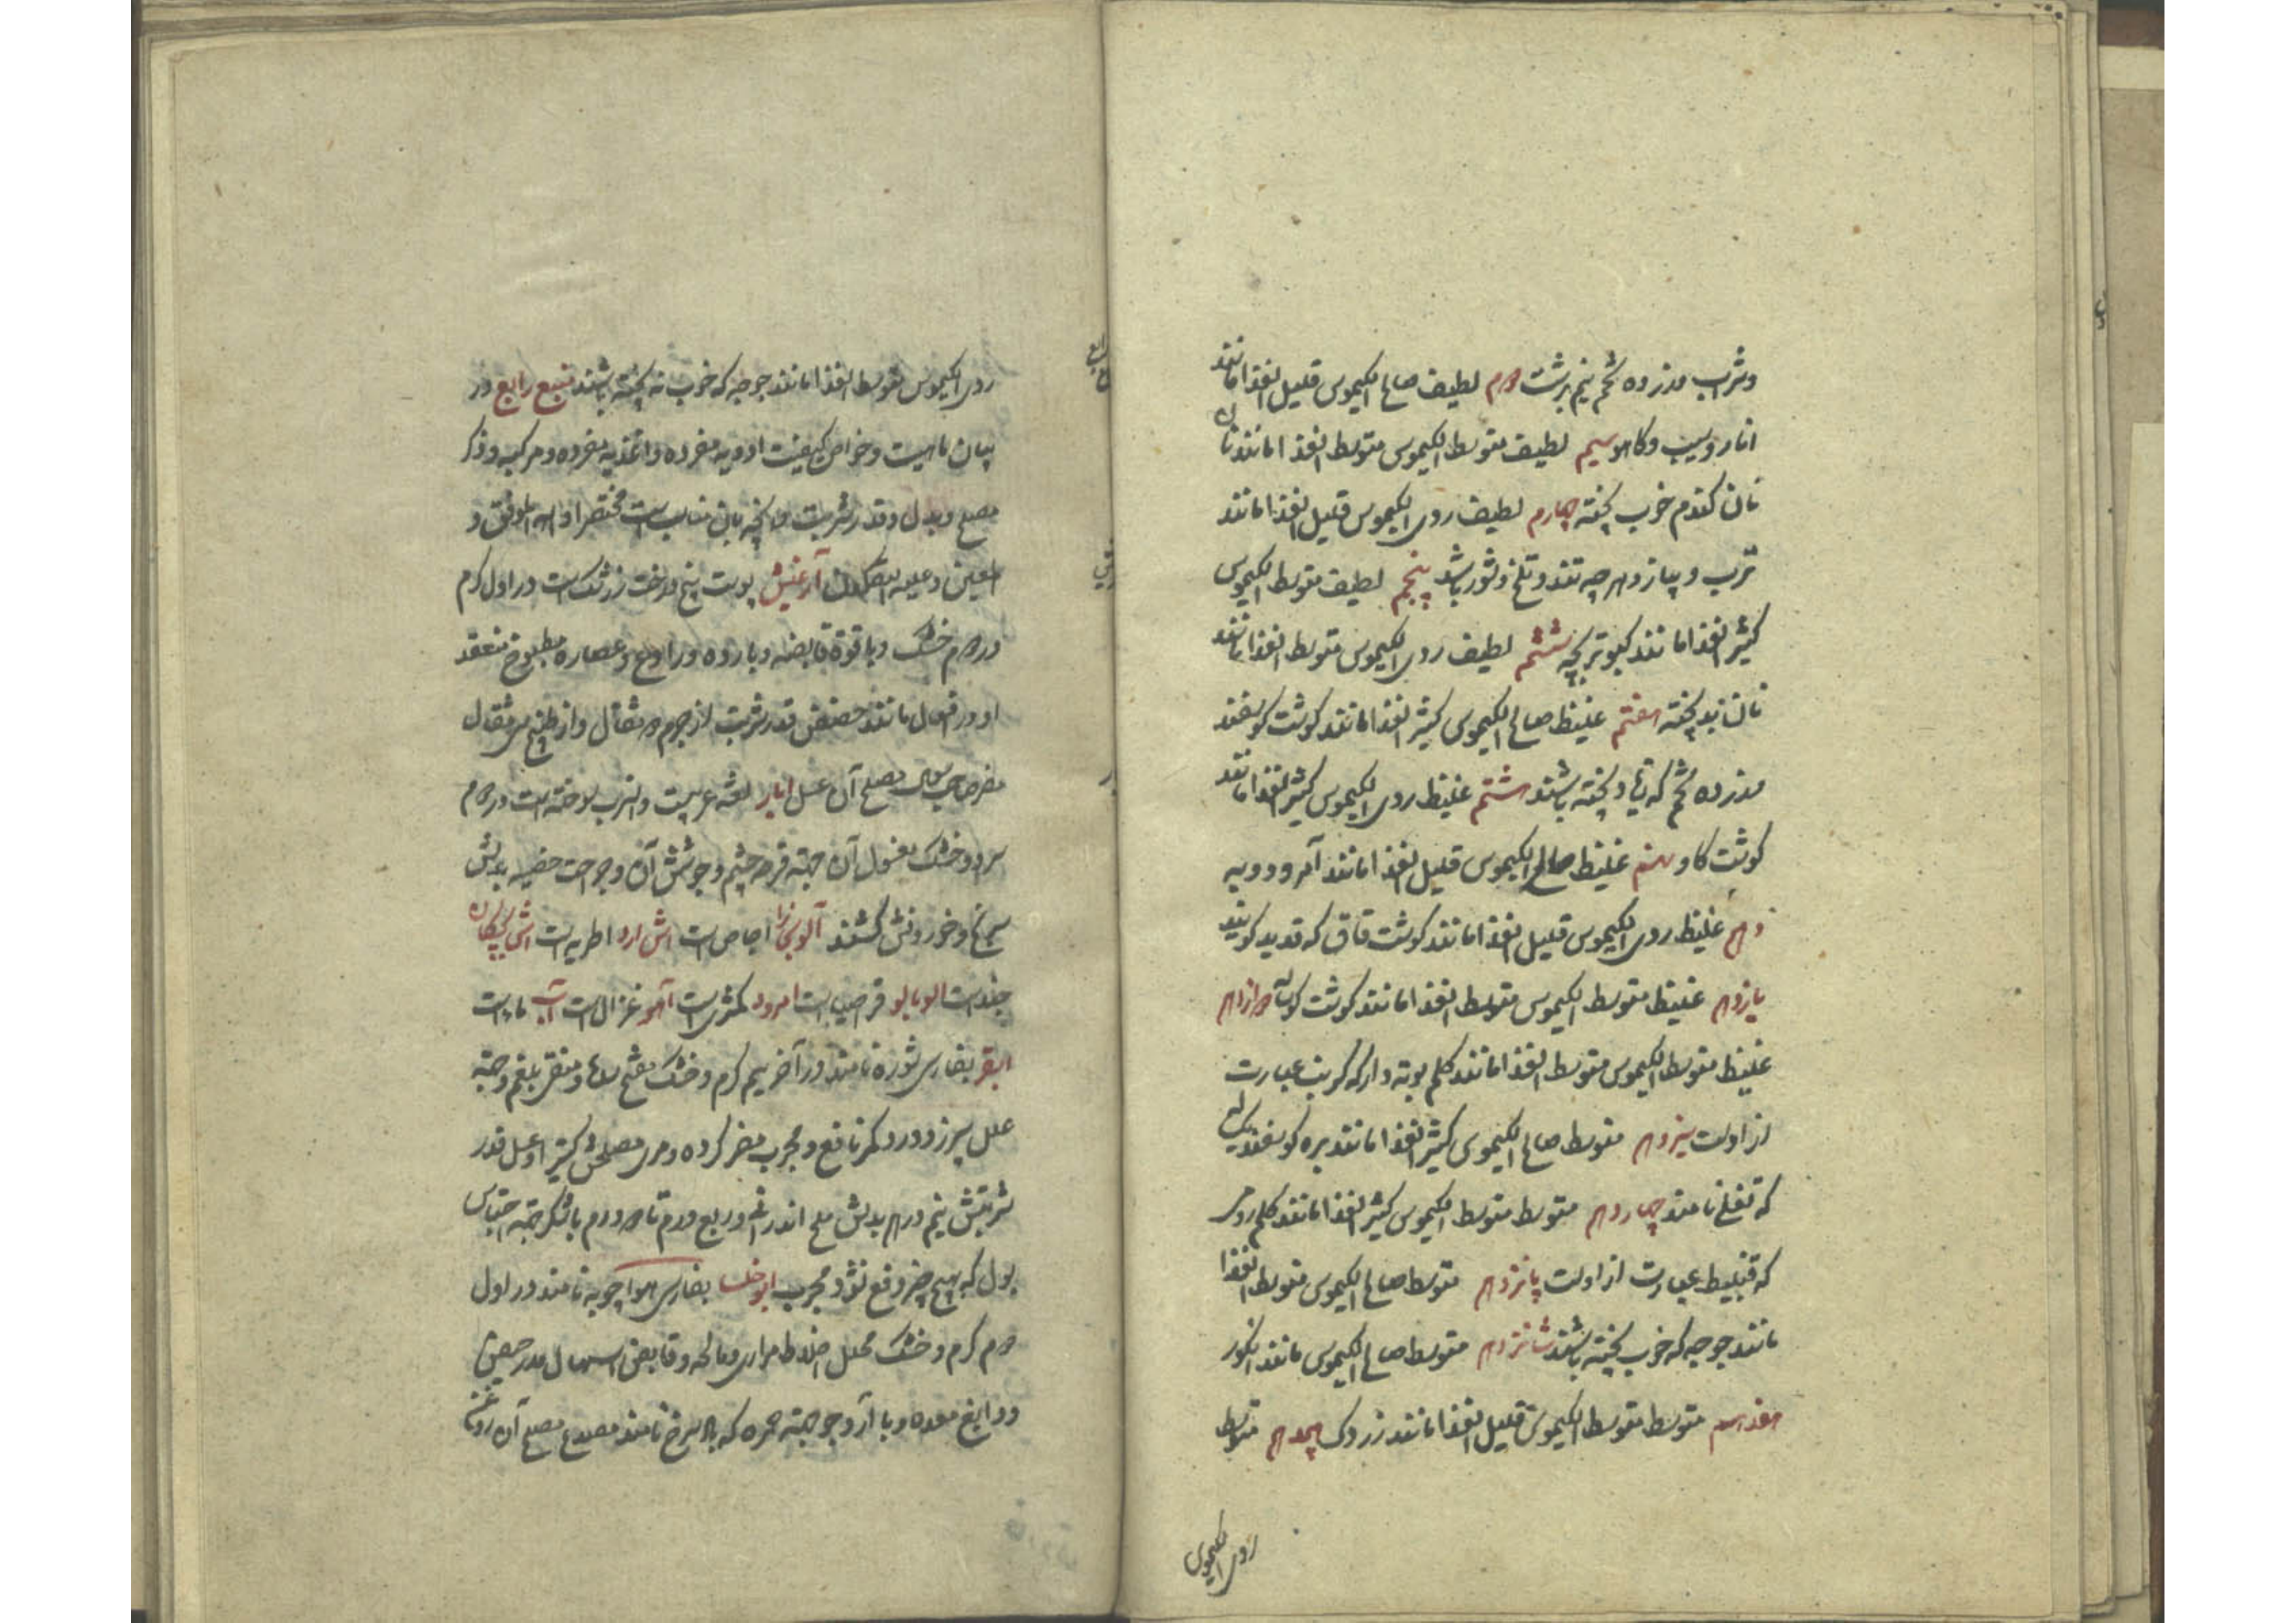 وشراب و زرده تخم نیم برشت دوم لطیف صالح الکیموس قلیل الغذا مانند
انار و سیب و کاهو سیم لطیف متوسط الکیموس متوسط الغذا مانند
نان گندم خوب پخته چهارم لطیف ردی الکیموس قلیل الغذا مانند
ترب و پیاز و هرچه تند و تلخ و شور باشد پنجم لطیف متوسط الکیموس
کثیر الغذا مانند کبوتر بچه ششم لطیف ردی الکیموس متوسط الغذا مانند
نان بد پخته هفتم غلیظ صالح الکیموس کثیر الغذا مانند گوشت گوسفند
و زرده تخم که پخته باشند هشتم غلیظ ردی الکیموس کثیر الغذا مانند
گوشت گاو نهم غلیظ صالح الکیموس قلیل الغذا مانند آمرود و به
دهم غلیظ ردی الکیموس قلیل الغذا مانند گوشت قاق که قدید گویند
یازدهم غلیظ متوسط الکیموس متوسط الغذا مانند گوشت دوازدهم
غلیظ متوسط الکیموس متوسط الغذا مانند کلم که کرنب عبارت
از اوست سیزدهم متوسط صالح الکیموس کثیر الغذا مانند بره گوسفند
که نامند چهاردهم متوسط متوسط الکیموس کثیر الغذا مانند کلم رومی
که قنبیط عبارت از اوست پانزدهم متوسط صالح الکیموس متوسط الغذا
مانند جوجه که خوب پخته باشند شانزدهم متوسط صالح الکیموس مانند انگور
هفدهم متوسط متوسط الکیموس قلیل الغذا مانند زردک هجدهم متوسط
ردی الکیموس
ردی الکیموس متوسط الغذا مانند جوجه که خوب نه پخته باشند تسبیع رابع در
بیان ماهیت و خواص کیفیت ادویه مفرده و اغذیه مفرده و مرکبه و ذکر
مصلح و بدل و قدر شربت و آنچه بآن مناسب است مختصرا و الله الموفق و
المعین و علیه التکلان آرغیش پوست بیخ درخت زرشک است در اول گرم
در دوم خشک و با قوة قابضه و بارده و رادع و عصاره مطبوخ منعقد
او در افعال مانند حضض قدر شربت از جرم دو مثقال و از طبیخ سی مثقال
مضر مصلح آن عسل ابار لغة عربیست و اسرب سوخته است در دوم
سرد و خشک مغسول آن جهة قرحه چشم و جوشش آن و جراحت خصیه بدلش
و خوردنش کشنده آلو بخارا اجاص است اش ارد اطریه است
است الوبالو قراصیا است امرود کمثری است آهو غزال است آب ماء است
ابقر بفارسی شوره نامند در آخر سیم گرم و خشک مفتح سدها و منقی بلغم و جهة
علل سپرز و درد کمر نافع و مجرب مضر گرده و مری مصلحش کتیرا و عسل قدر
شربتش نیم درهم بدلش ملح اندرانی و ربع درم تا دو درم با شکر جهة احتباس
بول که بهیچ چیز دفع نشود مجرب ابوخلسا بفارسی هواچوبه نامند در اول
دوم گرم و خشک محلل اخلاط مراری و مالحه و قابض اسهال مدر حیض
و دابغ معده و با آرد جو جهة حمره که باد سرخ نامند مصدع مصلح آن روغن